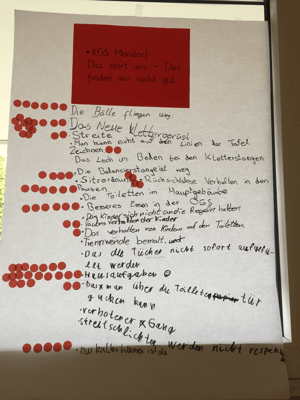 • KGS Mondorf:
Das stört uns - Das
finden wir nicht gut
Die Bälle fliegen weg
Das Neue Klettergerüst
Streite
• Man kann nicht auf den Linien der Tafel
Zeichnen
Das Loch im Boden bei den Kletterstangen
• Die Balancierstange ist weg
• Sitzordnung • Rücksichtslose Verhalten in den
Pausen
• Die Toiletten im Hauptgebäude
• Besseres Essen in der OGS
• Das Kinder sich nicht an die Regeln halten
• Verhalten der Kinder
• Das verhalten von Kindern auf den Toiletten
• Trennwende bemalt
• Das die Tücher nicht sofort aufgefü-
llt werden
• Hausaufgaben
• Das man über die Toiletten tür
gucken kann
• verbotener Gang
• streitschlichter werden nicht
• nur kaltes Wasser ist da